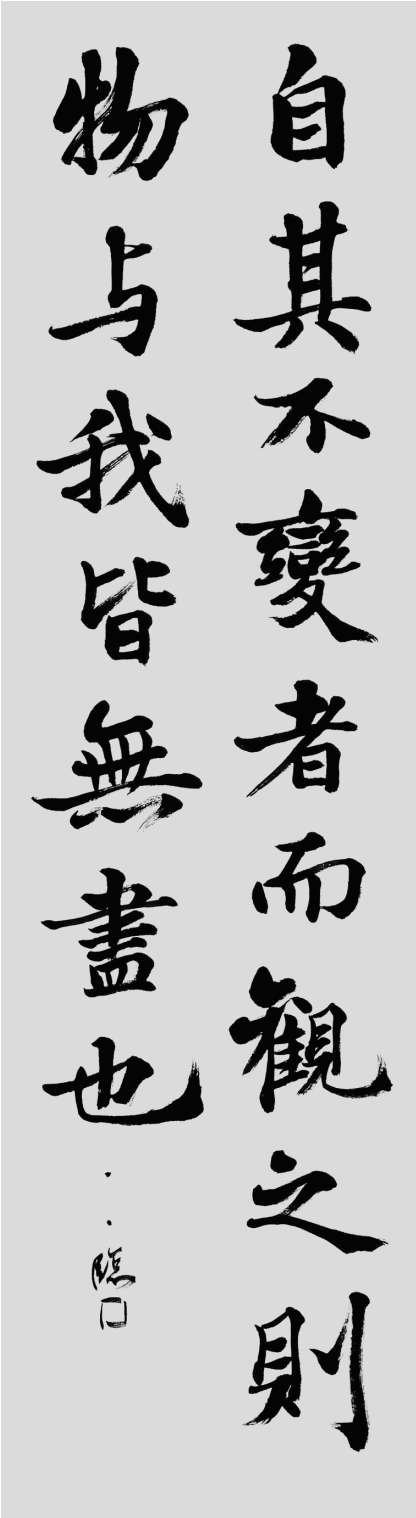 自其不變者而觀之則
物与我皆無盡也
、、臨